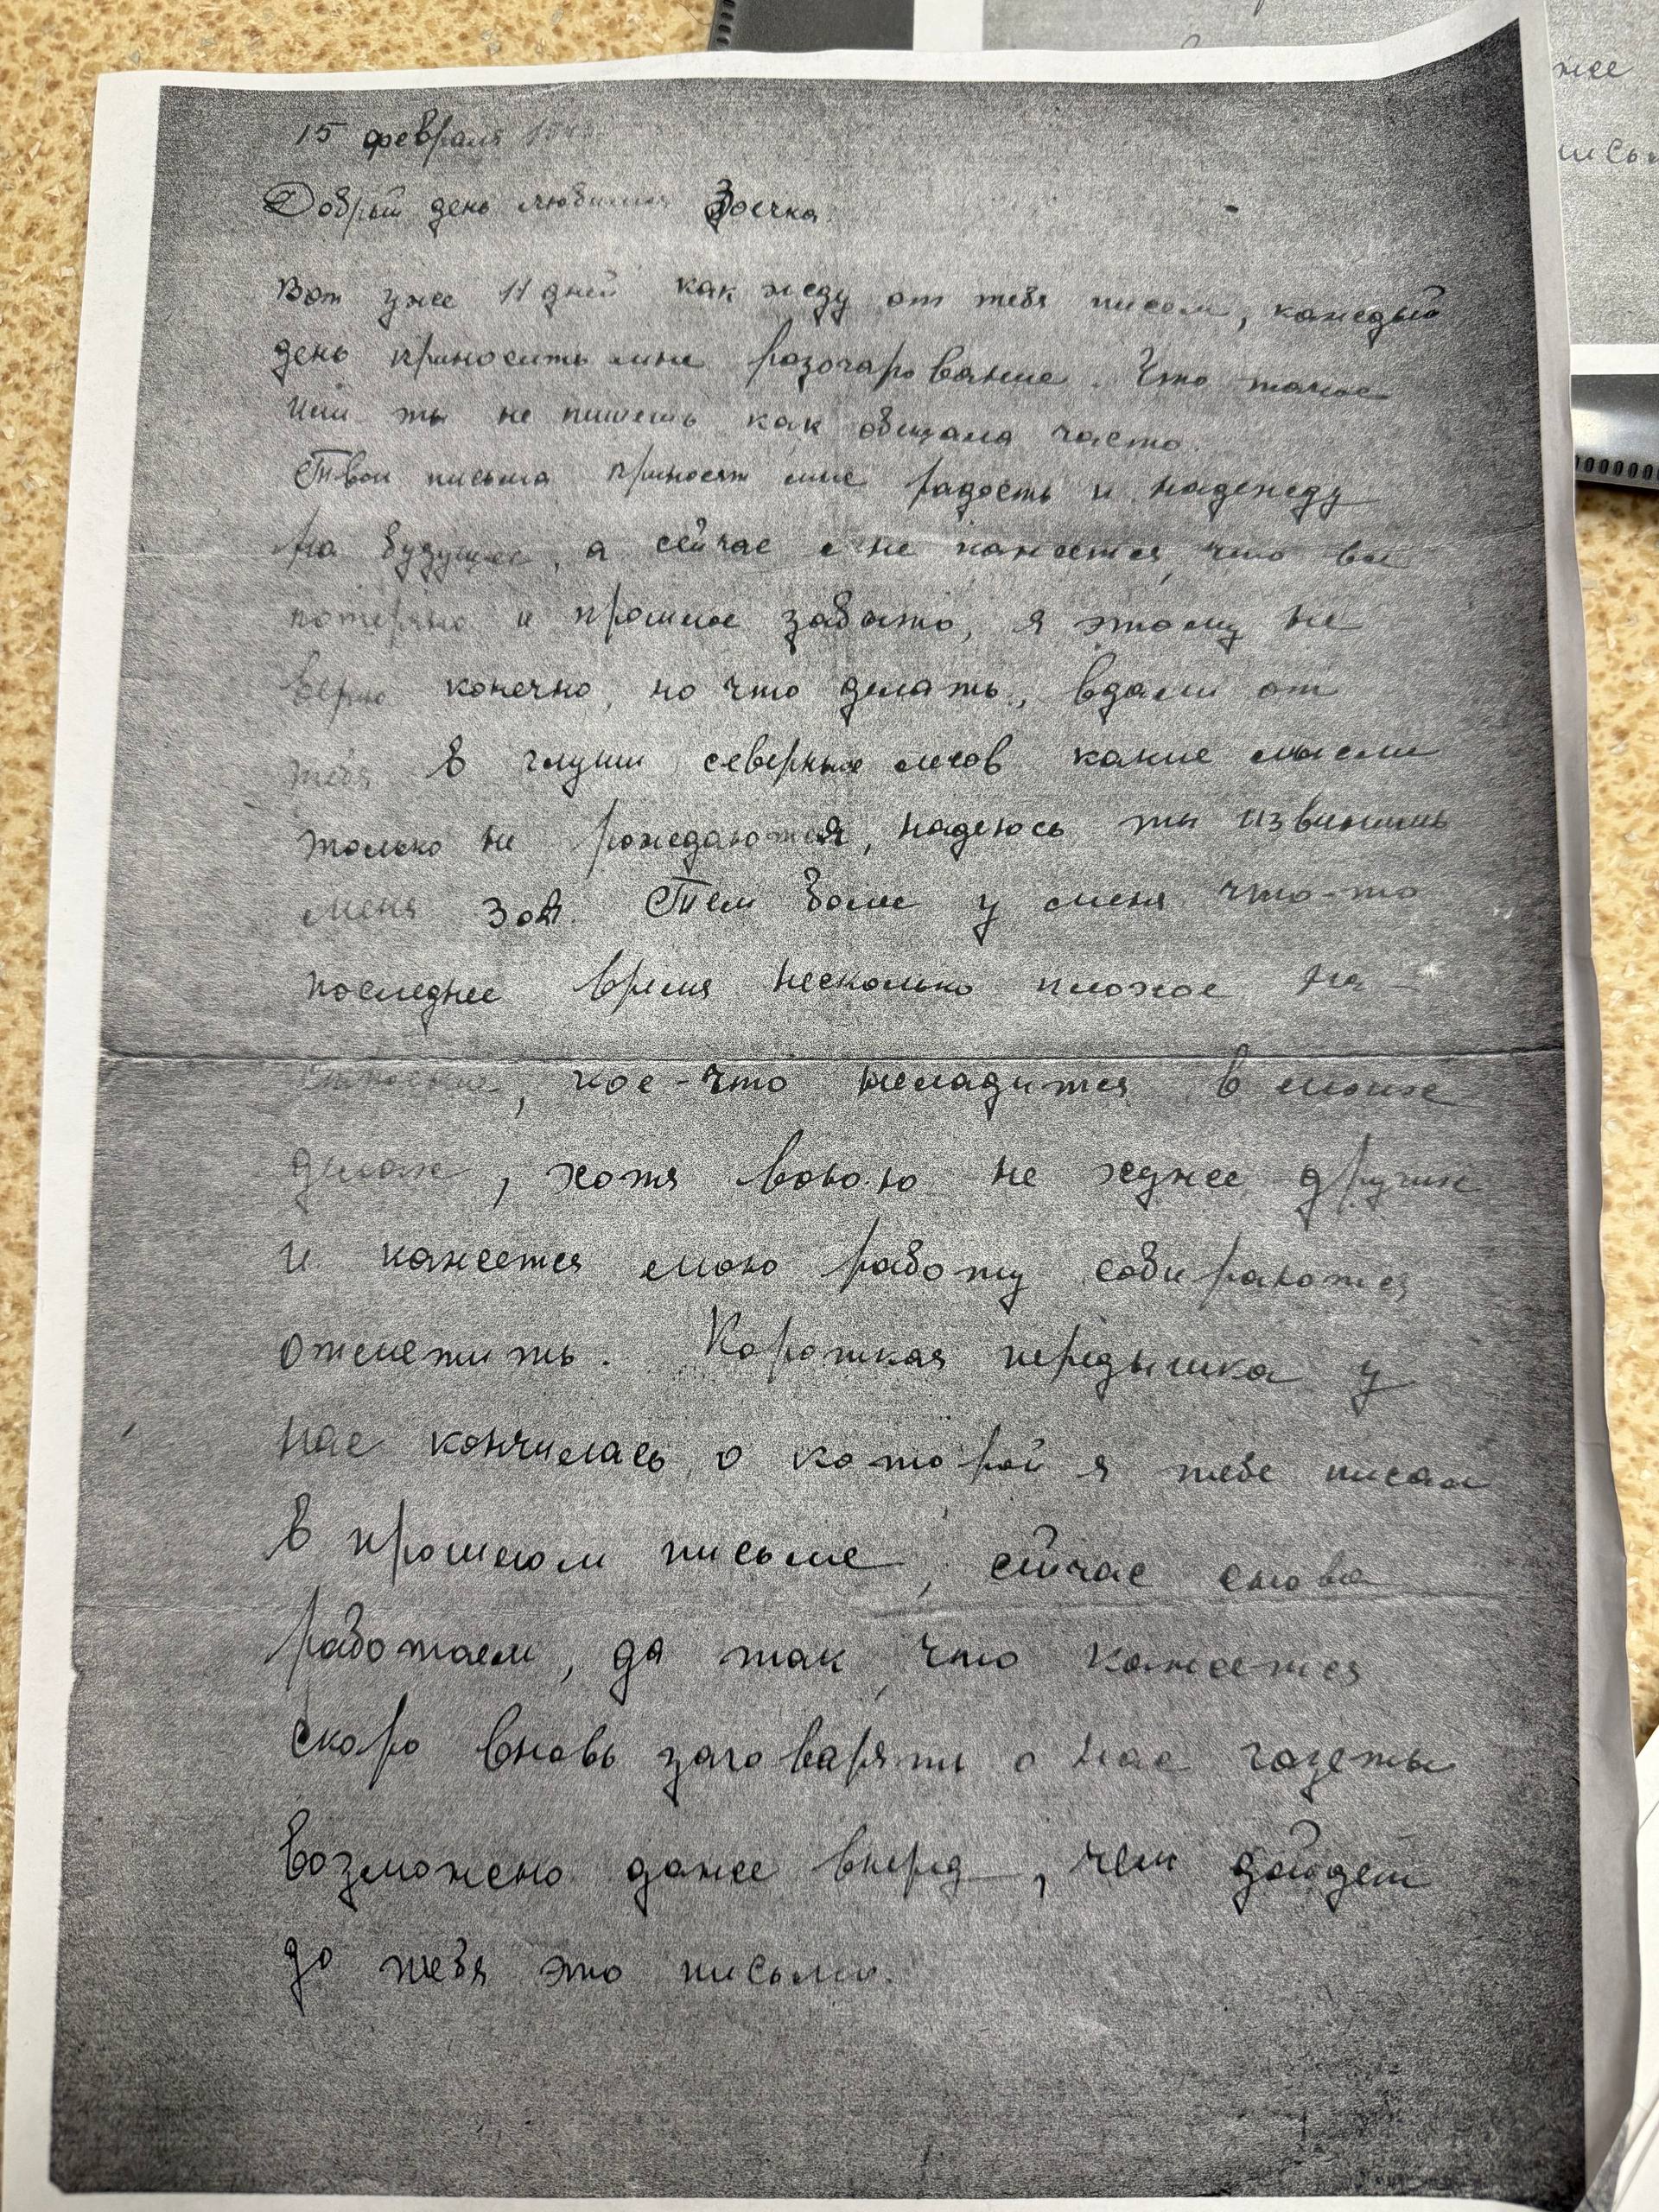 15 февраля
Добрый день любимая Зоечка.
Вот уже 11 дней как жду от тебя писем, каждый
день приносить мне разочарование. Что такое
или ты не пишешь как обещала часто.
Твои письма приносят мне радость и надежду
на будущее, а сейчас мне кажется, что все
потеряно и прошлое забыто, я этому не
верю конечно, но что делать, вдали от
тебя в глуши северных лесов какие мысли
только не рождаются, надеюсь ты извинишь
меня Зоя. Тем более у меня что-то
последнее время несколько плохое на-
строение, кое-что неладится в моих
делах, хотя воюю не хуже других
и кажется мою работу собираются
отметить. Короткая передышка у
нас кончилась, о которой я тебе писал
в прошлом письме, сейчас снова
работаем, да так, что кажется
скоро вновь заговарять о нас газеты
возможно даже вперед, чем дойдет
до тебя это письмо.
жее